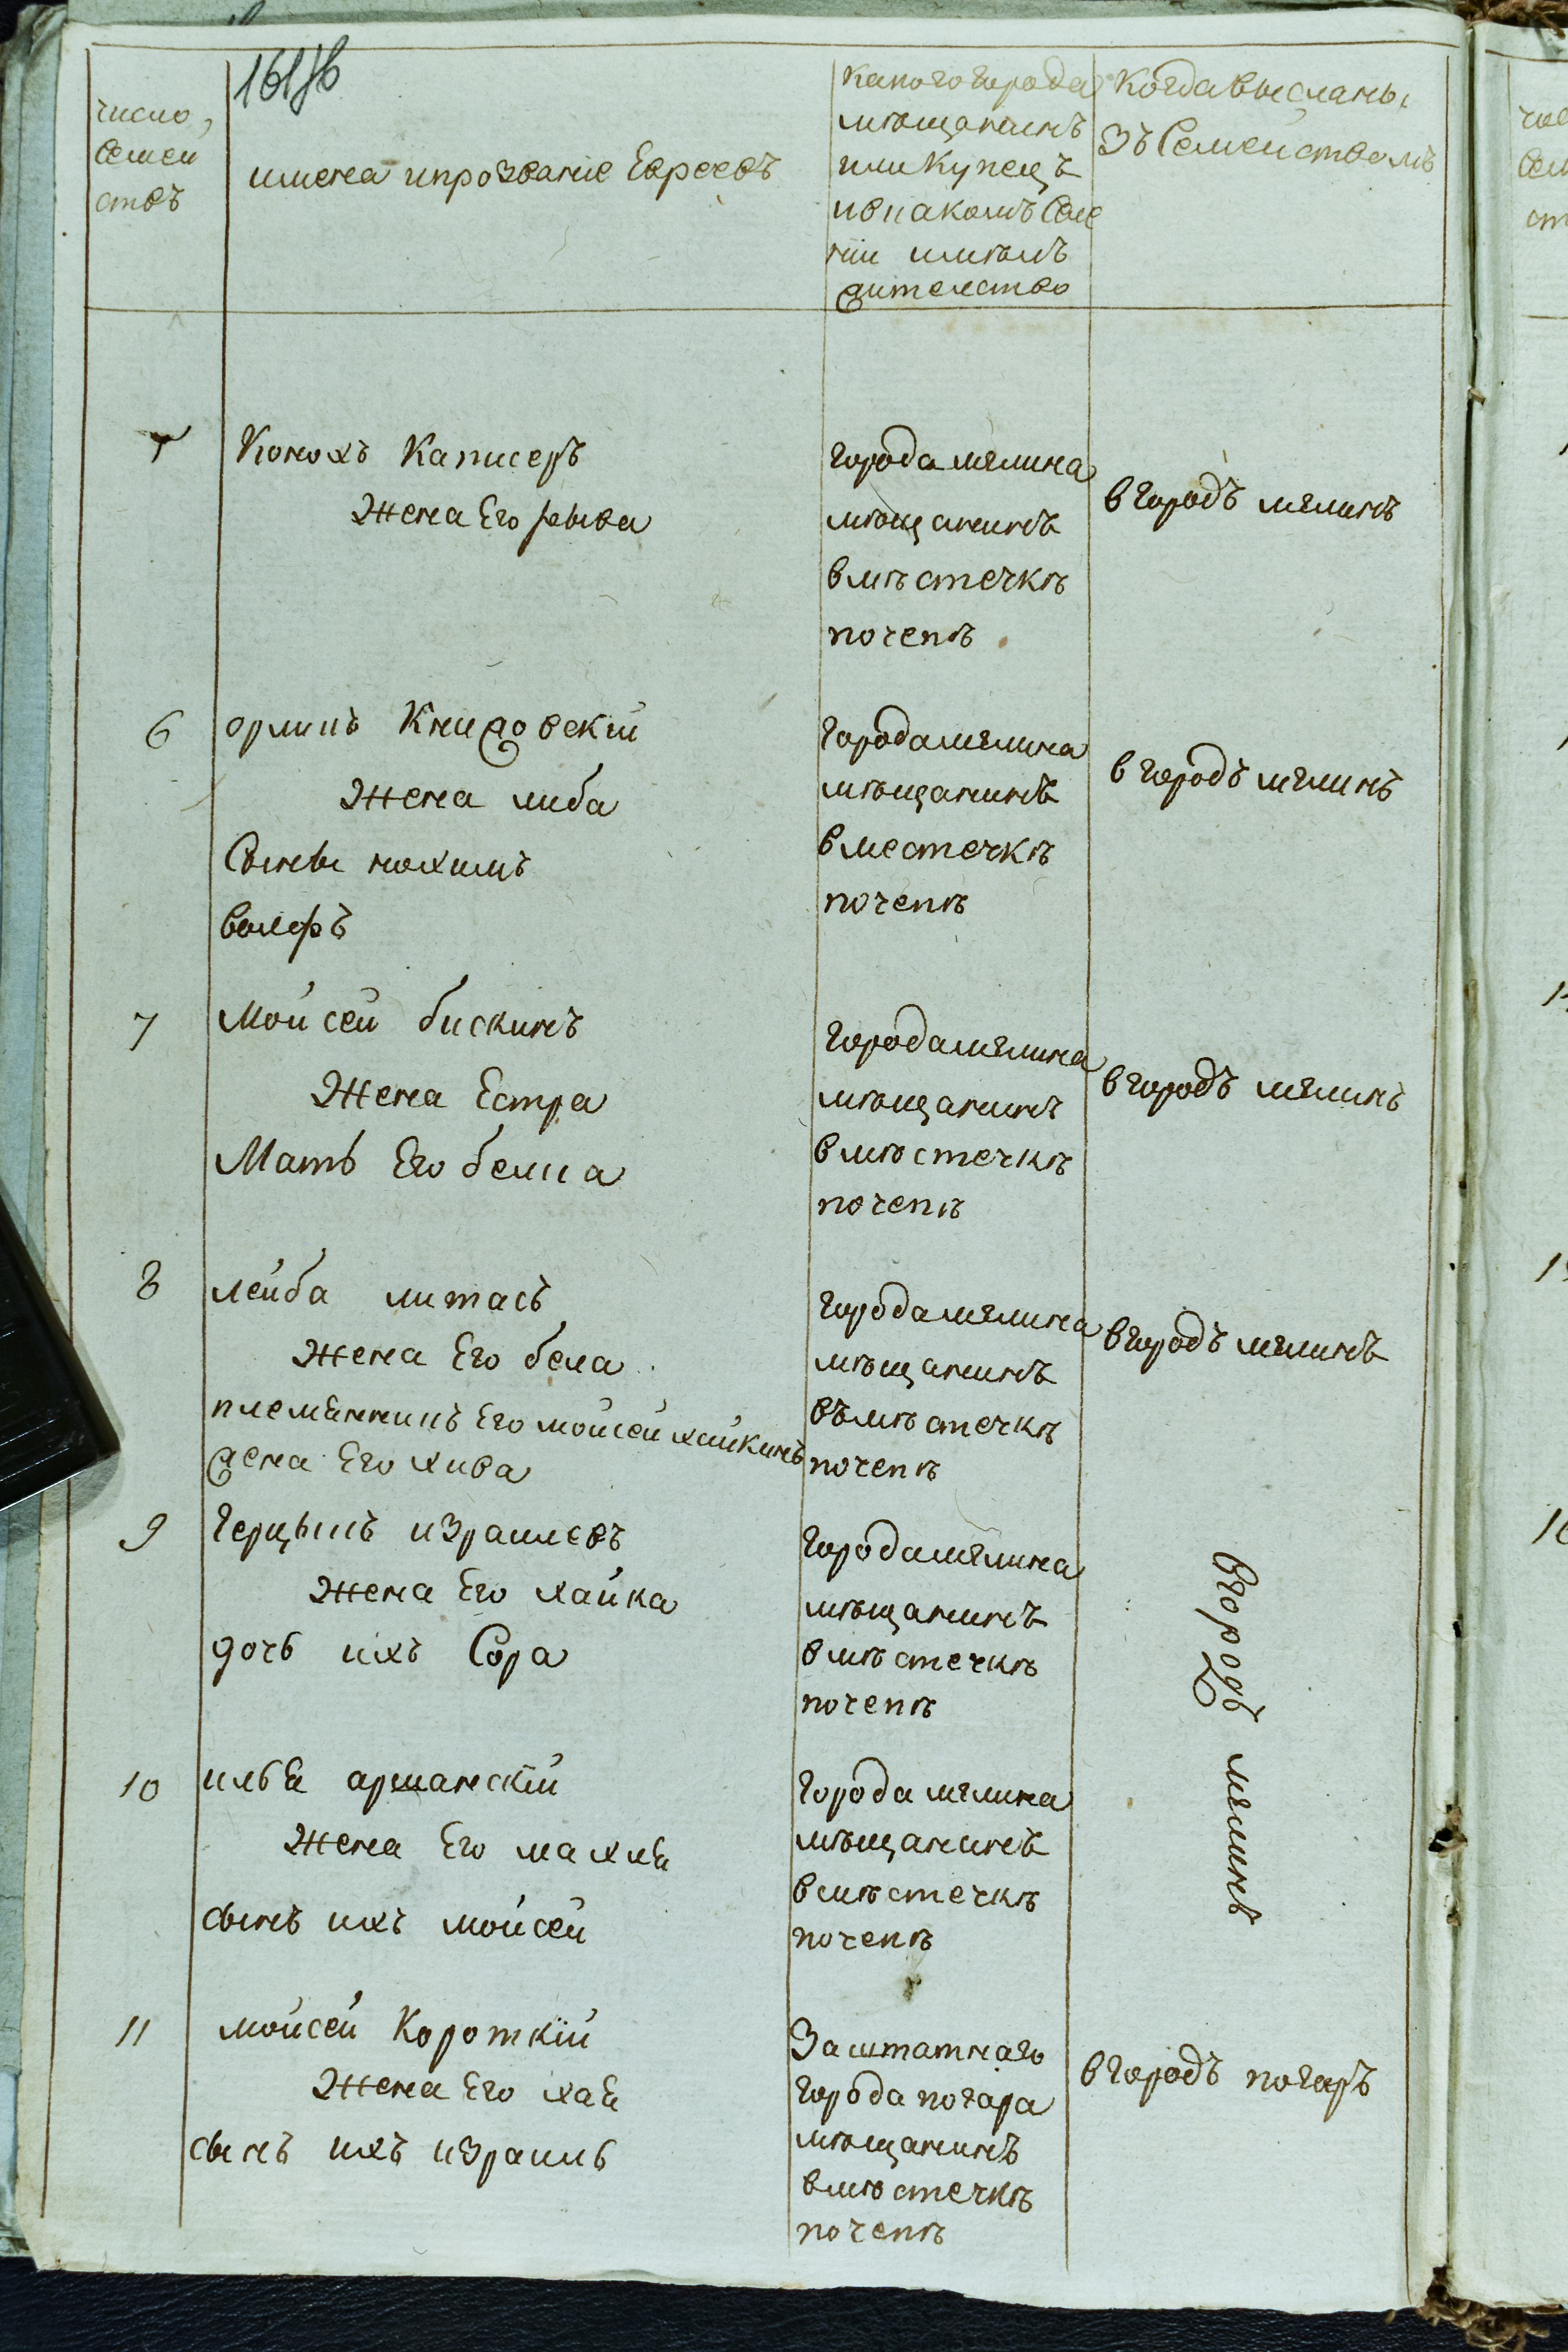 число
семей
ствъ
имена ипрозвание Евреевъ
какого города
мѣщанинъ
или Купецъ
ивкакомъ Селе
нии имѣлъ
жителство
Когда высланы
Зъ Семействомъ
Конохъ Каписеръ
Жена Его рыва
города мглина
мѣщанинъ
вмѣстечкѣ
почепѣ
в городъ мглинъ
6
орликъ Книжовский
Жена либа
Сыны нохимъ
волфъ
города мглина
мѣщанинъ
вместечкѣ
почепѣ
в городъ мглинъ
7
Мойсей бискинъ
Жена Естра
Мать Его белка
города мглина
мѣщанинъ
вмѣстечкѣ
почепѣ
в городъ мглинъ
8
лейба литасъ
Жена Его бела
племенникъ Его мойсей хайкинъ
жена Его хива
города мглина
мѣщанинъ
въмѣстечкѣ
почепѣ
в городъ мглинъ
9
Герцыкъ израилевъ
Жена Его хайка
дочь ихъ Сора
города мглина
мѣщанинъ
вмѣстечкѣ
почепѣ
в городъ мглинъ
10
илье аршанский
Жена Его махле
сынъ ихъ мойсей
города мглина
мѣщанинъ
вмѣстечкѣ
почепѣ
11
мойсей Короткий
Жена Его хае
сынъ ихъ израиль
Заштатнаго
города погара
мѣщанинъ
вмѣстечкѣ
почепѣ
в городъ погаръ